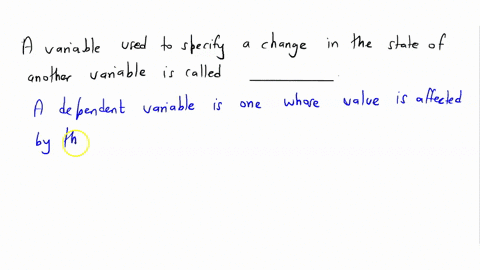 A variable used to specify a change in the state of
another variable is called __________.
A dependent variable is one whose value is affected
by th